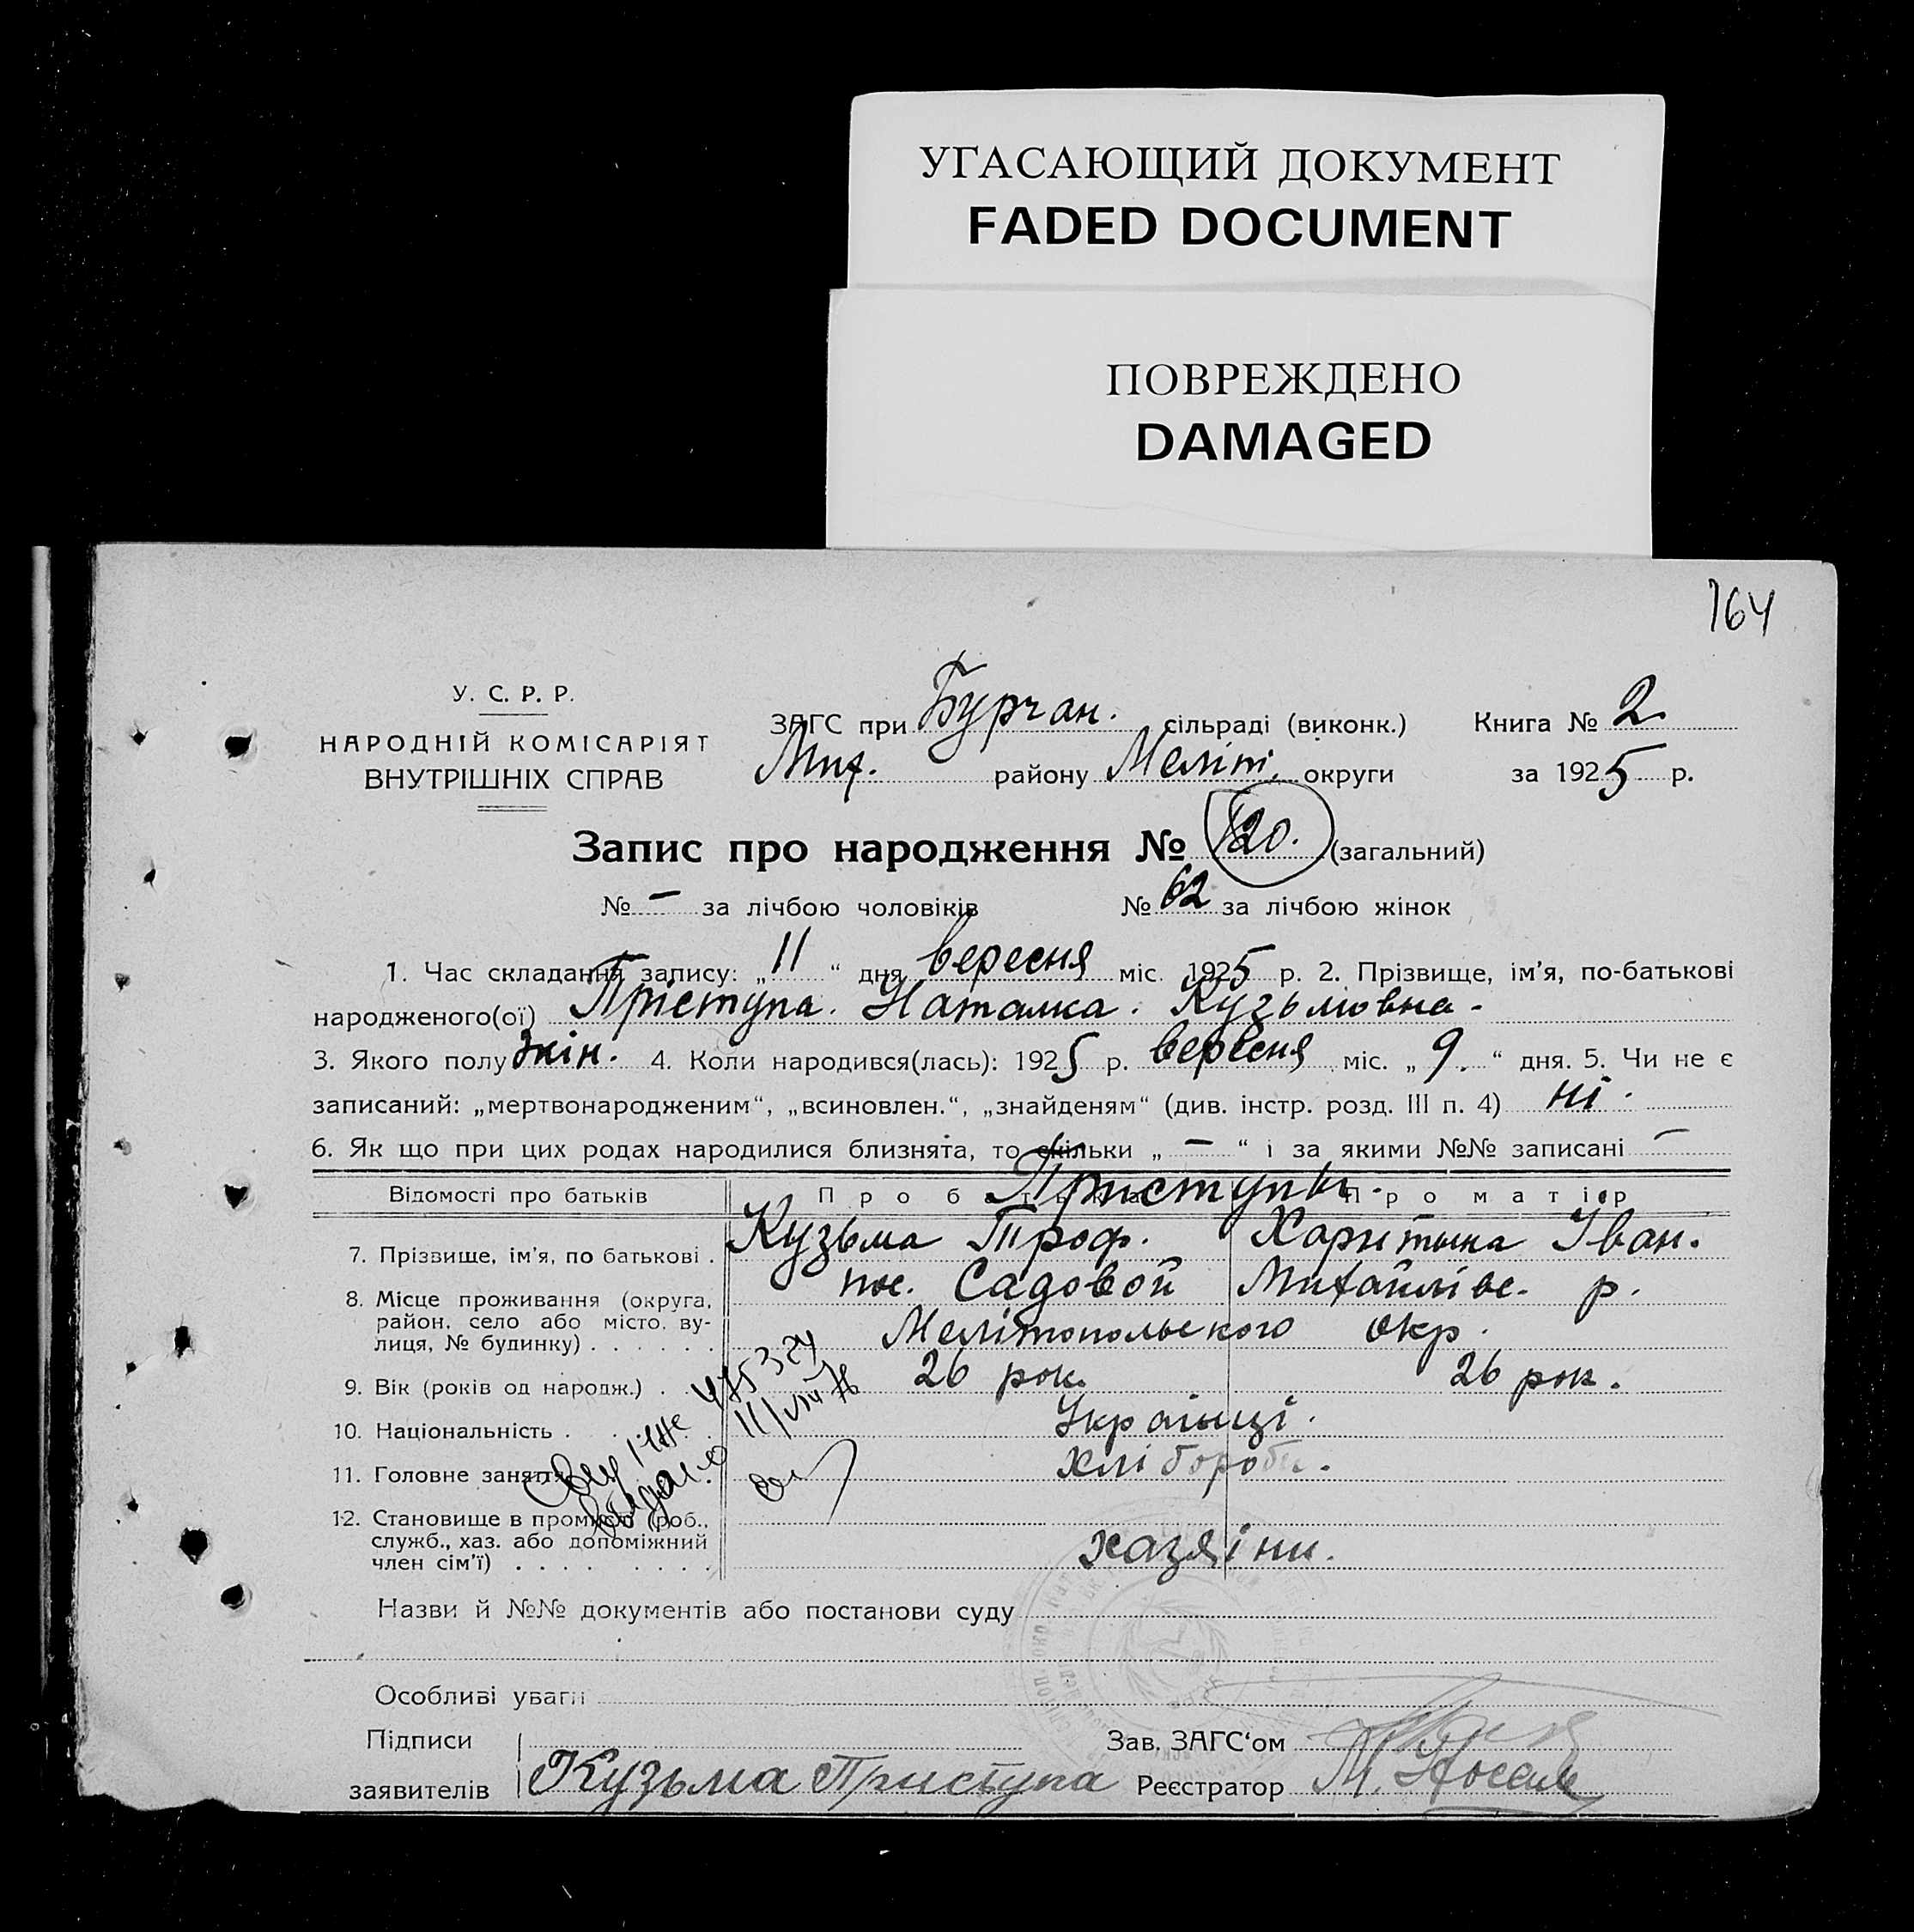 УГАСАЮЩИЙ ДОКУМЕНТ
FADED DOCUMENT
ПОВРЕЖДЕНО
DAMAGED
164
У. С. Р. Р.
НАРОДНІЙ КОМІСАРІЯТ
ВНУТРІШНІХ СПРАВ
ЗАГС при Бурчан. сільраді (виконк.) Книга № 2
Мих. району Меліт. округи за 1925 р.
Запис про народження № 120. (загальний)
№ – за лічбою чоловіків № 62 за лічбою жінок
1. Час складання запису: „ 11 “ дня вересня міс. 1925 р. 2. Прізвище, ім’я, по-батькові
народженого(ої) Прiступа. Наталка. Кузьмовна.
3. Якого полу жін. 4. Коли народився(лась): 1925 р. вересня міс. „ 9. “ дня. 5. Чи не є
записаний: „мертвонародженим“, „всиновлен.“, „знайденям“ (див. інстр. розд. III п. 4) ні.
6. Як що при цих родах народилися близнята, то скільки „ – “ і за якими №№ записані –
Відомості про батьків Про батька Про матір
Приступы.
7. Прізвище, ім’я, по батькові . Кузьма Троф. Харитына Іван.
8. Місце проживання (округа, район, село або місто, вулиця, № будинку) . . . . . . пос. Садовой Михайлівс. р.
Мелітопольського окр.
9. Вік (років од народж.) . 26 рок. 26 рок.
10. Національність . . . . . Українці.
11. Головне заняття Хлібороби.
12. Становище в промислі (роб.,
служб., хаз. або допоміжний
член сім’ї) . . . . . . . . хазяіни.
выдано 475324
11/VIII 76
Назви й №№ документів або постанови суду
Особливі уваги
Підписи Зав. ЗАГС‘ом
заявителів Кузьма Приступа Реєстратор М. Носаль